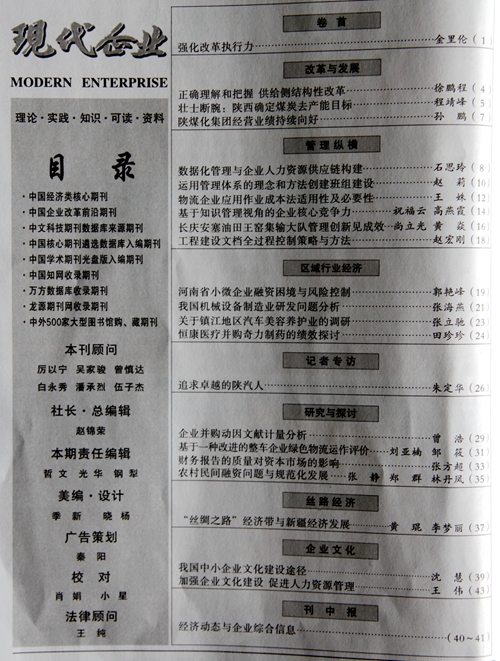 现代企业
MODERN ENTERPRISE
理论·实践·知识·可读·资料
目 录
·中国经济类核心期刊
·中国企业改革前沿期刊
·中文科技期刊数据库来源期刊
·中国核心期刊遴选数据库入编期刊
·中国学术期刊光盘版入编期刊
·中国知网收录期刊
·万方数据库收录期刊
·龙源期刊网收录期刊
·中外500家大型图书馆购、藏期刊
本刊顾问
厉以宁 吴家骏 曾慎达
白永秀 潘承烈 伍子杰
社长·总编辑
赵锦荣
本期责任编辑
哲文 光华 钢犁
美编·设计
季新 晓杨
广告策划
秦阳
校 对
肖娟 小星
法律顾问
王纯
卷 首
强化改革执行力……金里伦(1)
改革与发展
正确理解和把握 供给侧结构性改革……徐鹏程(4)
壮士断腕:陕西确定煤炭去产能目标……程靖峰(5)
陕煤化集团经营业绩持续向好……孙 鹏(7)
管理纵横
数据化管理与企业人力资源供应链构建……石思玲(8)
运用管理体系的理念和方法创建班组建设……赵 莉(10)
物流企业应用作业成本法适用性及必要性……王 姝(12)
基于知识管理视角的企业核心竞争力……祝福云 高燕霞(14)
长庆安塞油田王窑集输大队管理创新见成效…尚立光 黄 焱(16)
工程建设文档全过程控制策略与方法……赵宏刚(18)
区域行业经济
河南省小微企业融资困境与风险控制……郭艳峰(19)
我国机械设备制造业研发问题分析……张海燕(21)
关于镇江地区汽车美容养护业的调研……张立驰(23)
恒康医疗并购奇力制药的绩效探讨……田珍珍(24)
记者专访
追求卓越的陕汽人……朱定华(26)
研究与探讨
企业并购动因文献计量分析……曾 浩(29)
基于一种改进的整车企业绿色物流运作评价……刘亚楠 邹 筱(31)
财务报告的质量对资本市场的影响……张方超(33)
农村民间融资问题与规范化发展……张 静 郑 群 林丹凤(35)
丝路经济
“丝绸之路”经济带与新疆经济发展……黄 琨 李梦丽(37)
企业文化
我国中小企业文化建设途径……沈 慧(39)
加强企业文化建设 促进人力资源管理……王 伟(43)
刊 中 报
经济动态与企业综合信息……(40~41)